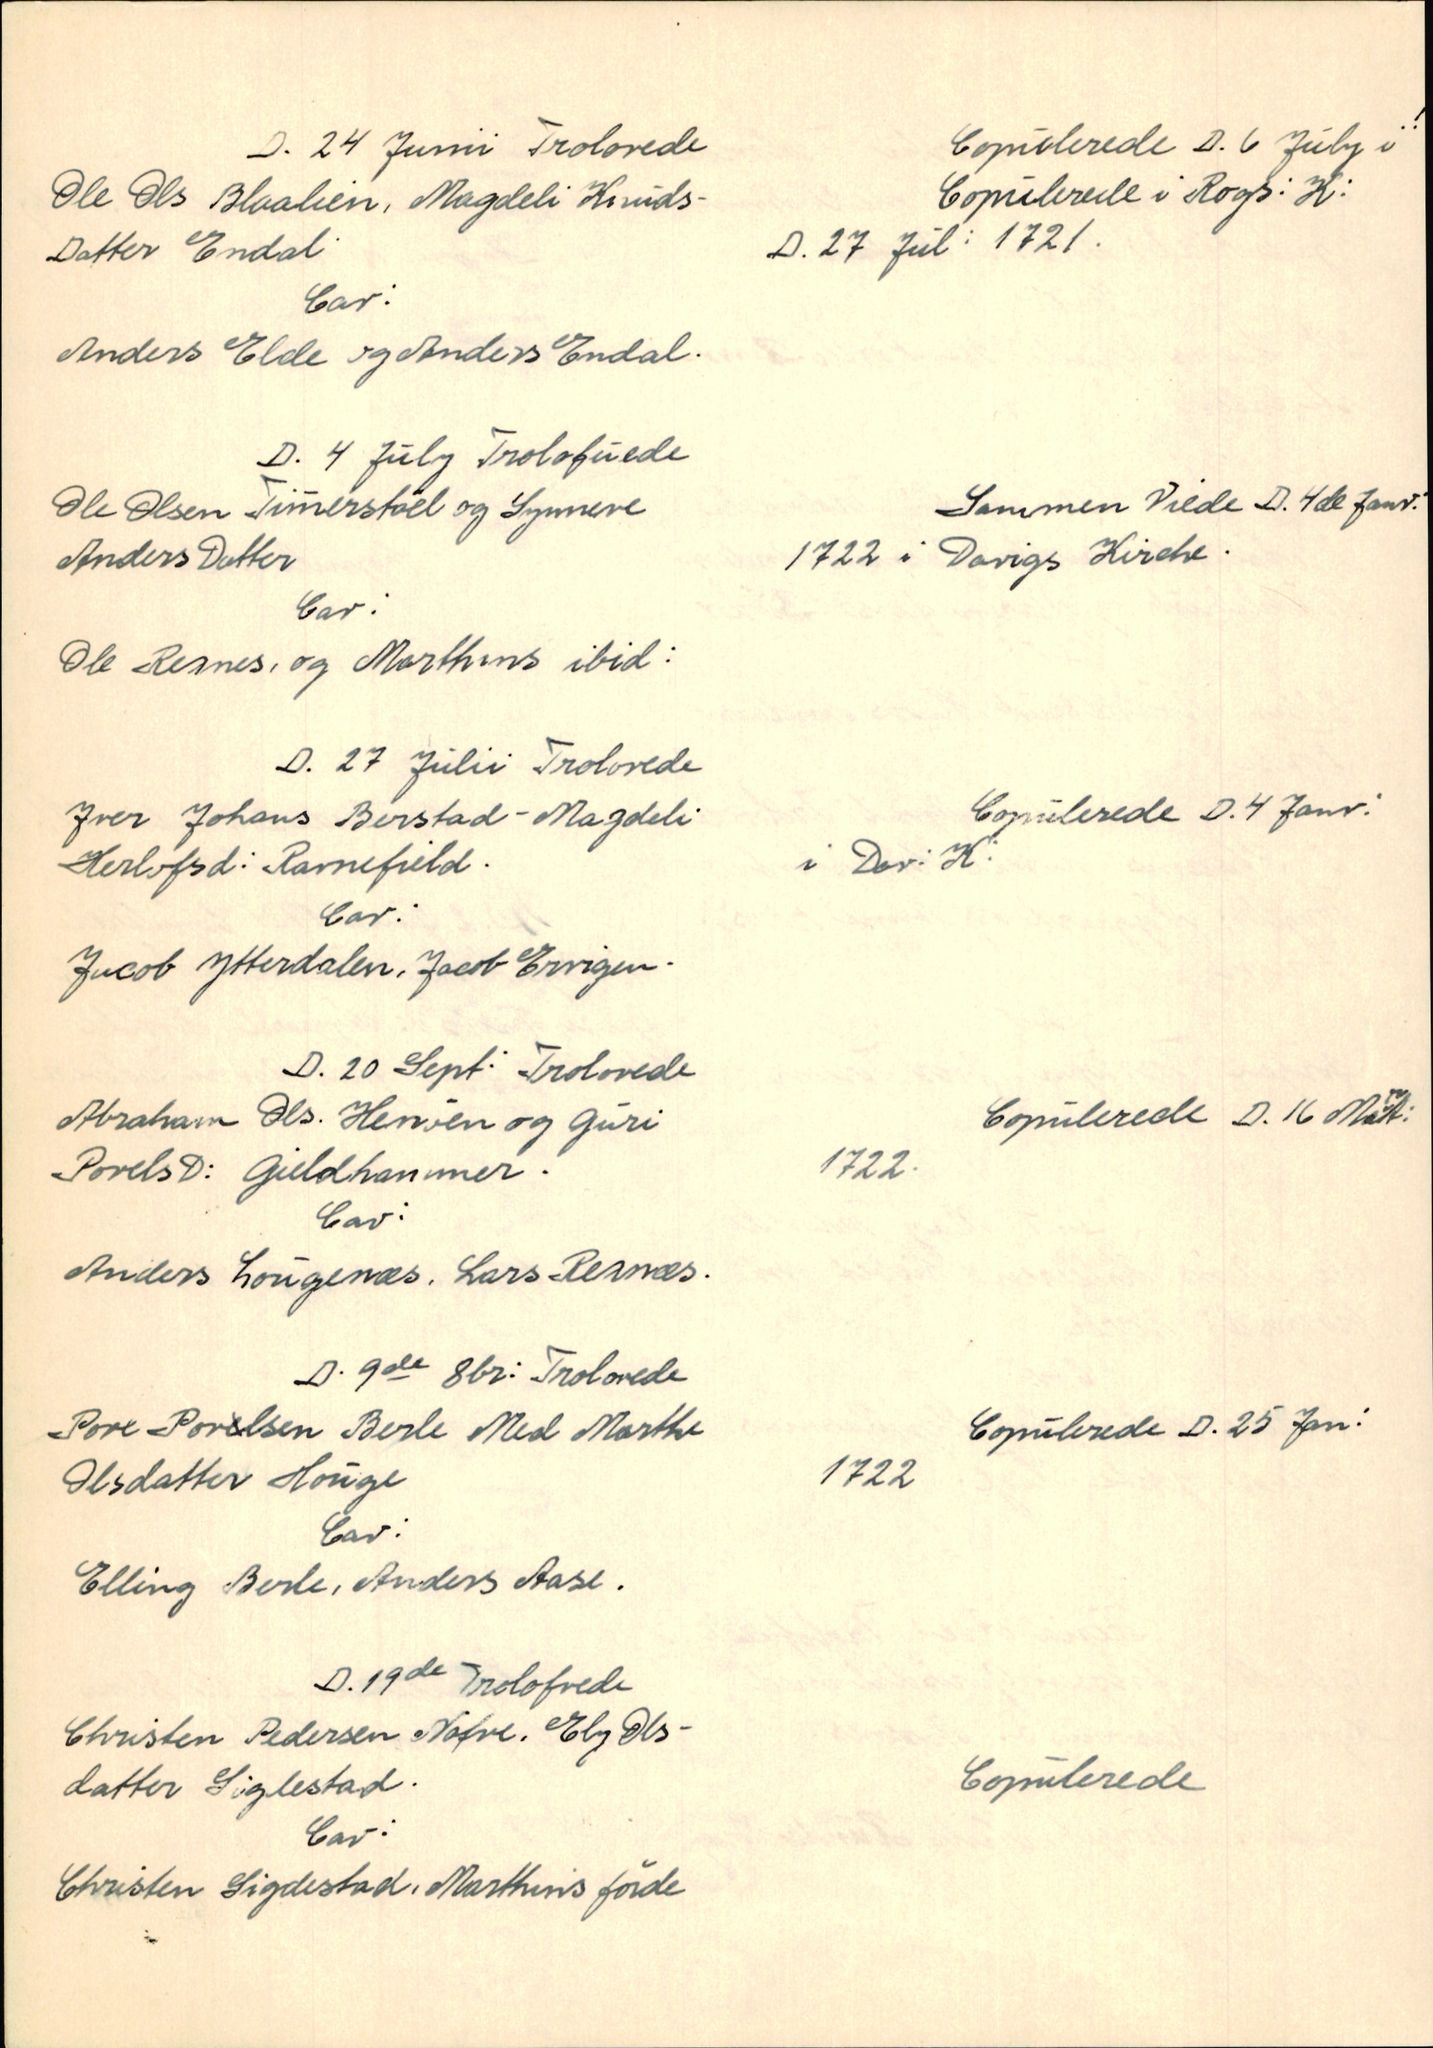 D. 24 Junii Trolovede
Ole Ols Blaalien, Magdeli Knuds-
Datter Endal
Cav:
Anders Elde og Anders Endal.
Copulerede D. 6 July i !
Copulerede i Rogs: K:
D. 27 Jul: 1721.
D. 4 July Trolofuede
Ole Olsen Timerstöel og Synneve
Anders Datter
Cav:
Ole Rexnes, og Marthins ibid:
Sammen Viede D. 4de Janv:
1722 i Davigs Kirche.
D. 27 Julii Trolovede
Iver Johans Berstad - Magdeli
Herlofsd: Ravnefield.
Cav:
Jacob Ytterdalen, Jacob Ervigen.
Copulerede D. 4 Janv:
i Dav: K:
D. 20 Sept: Trolovede
Abraham Ols. Henöen og Guri
Povels D: Gieldhammer.
Cav:
Anders Lougenæs, Lars Rexnæs.
Copulerede D. 16
1722.
D. 9de 8br: Trolovede
Pove Povelsen Berle Med Marthe
Olsdatter Houge
Cav:
Elling Berle, Anders Aase.
Copulerede D. 25 Jan:
1722
D. 19de Trolofvede
Christen Pedersen Nafve, Ely Ols-
datter Siglestad.
Cav:
Christen Sigdestad, Marthins förde
Copulerede